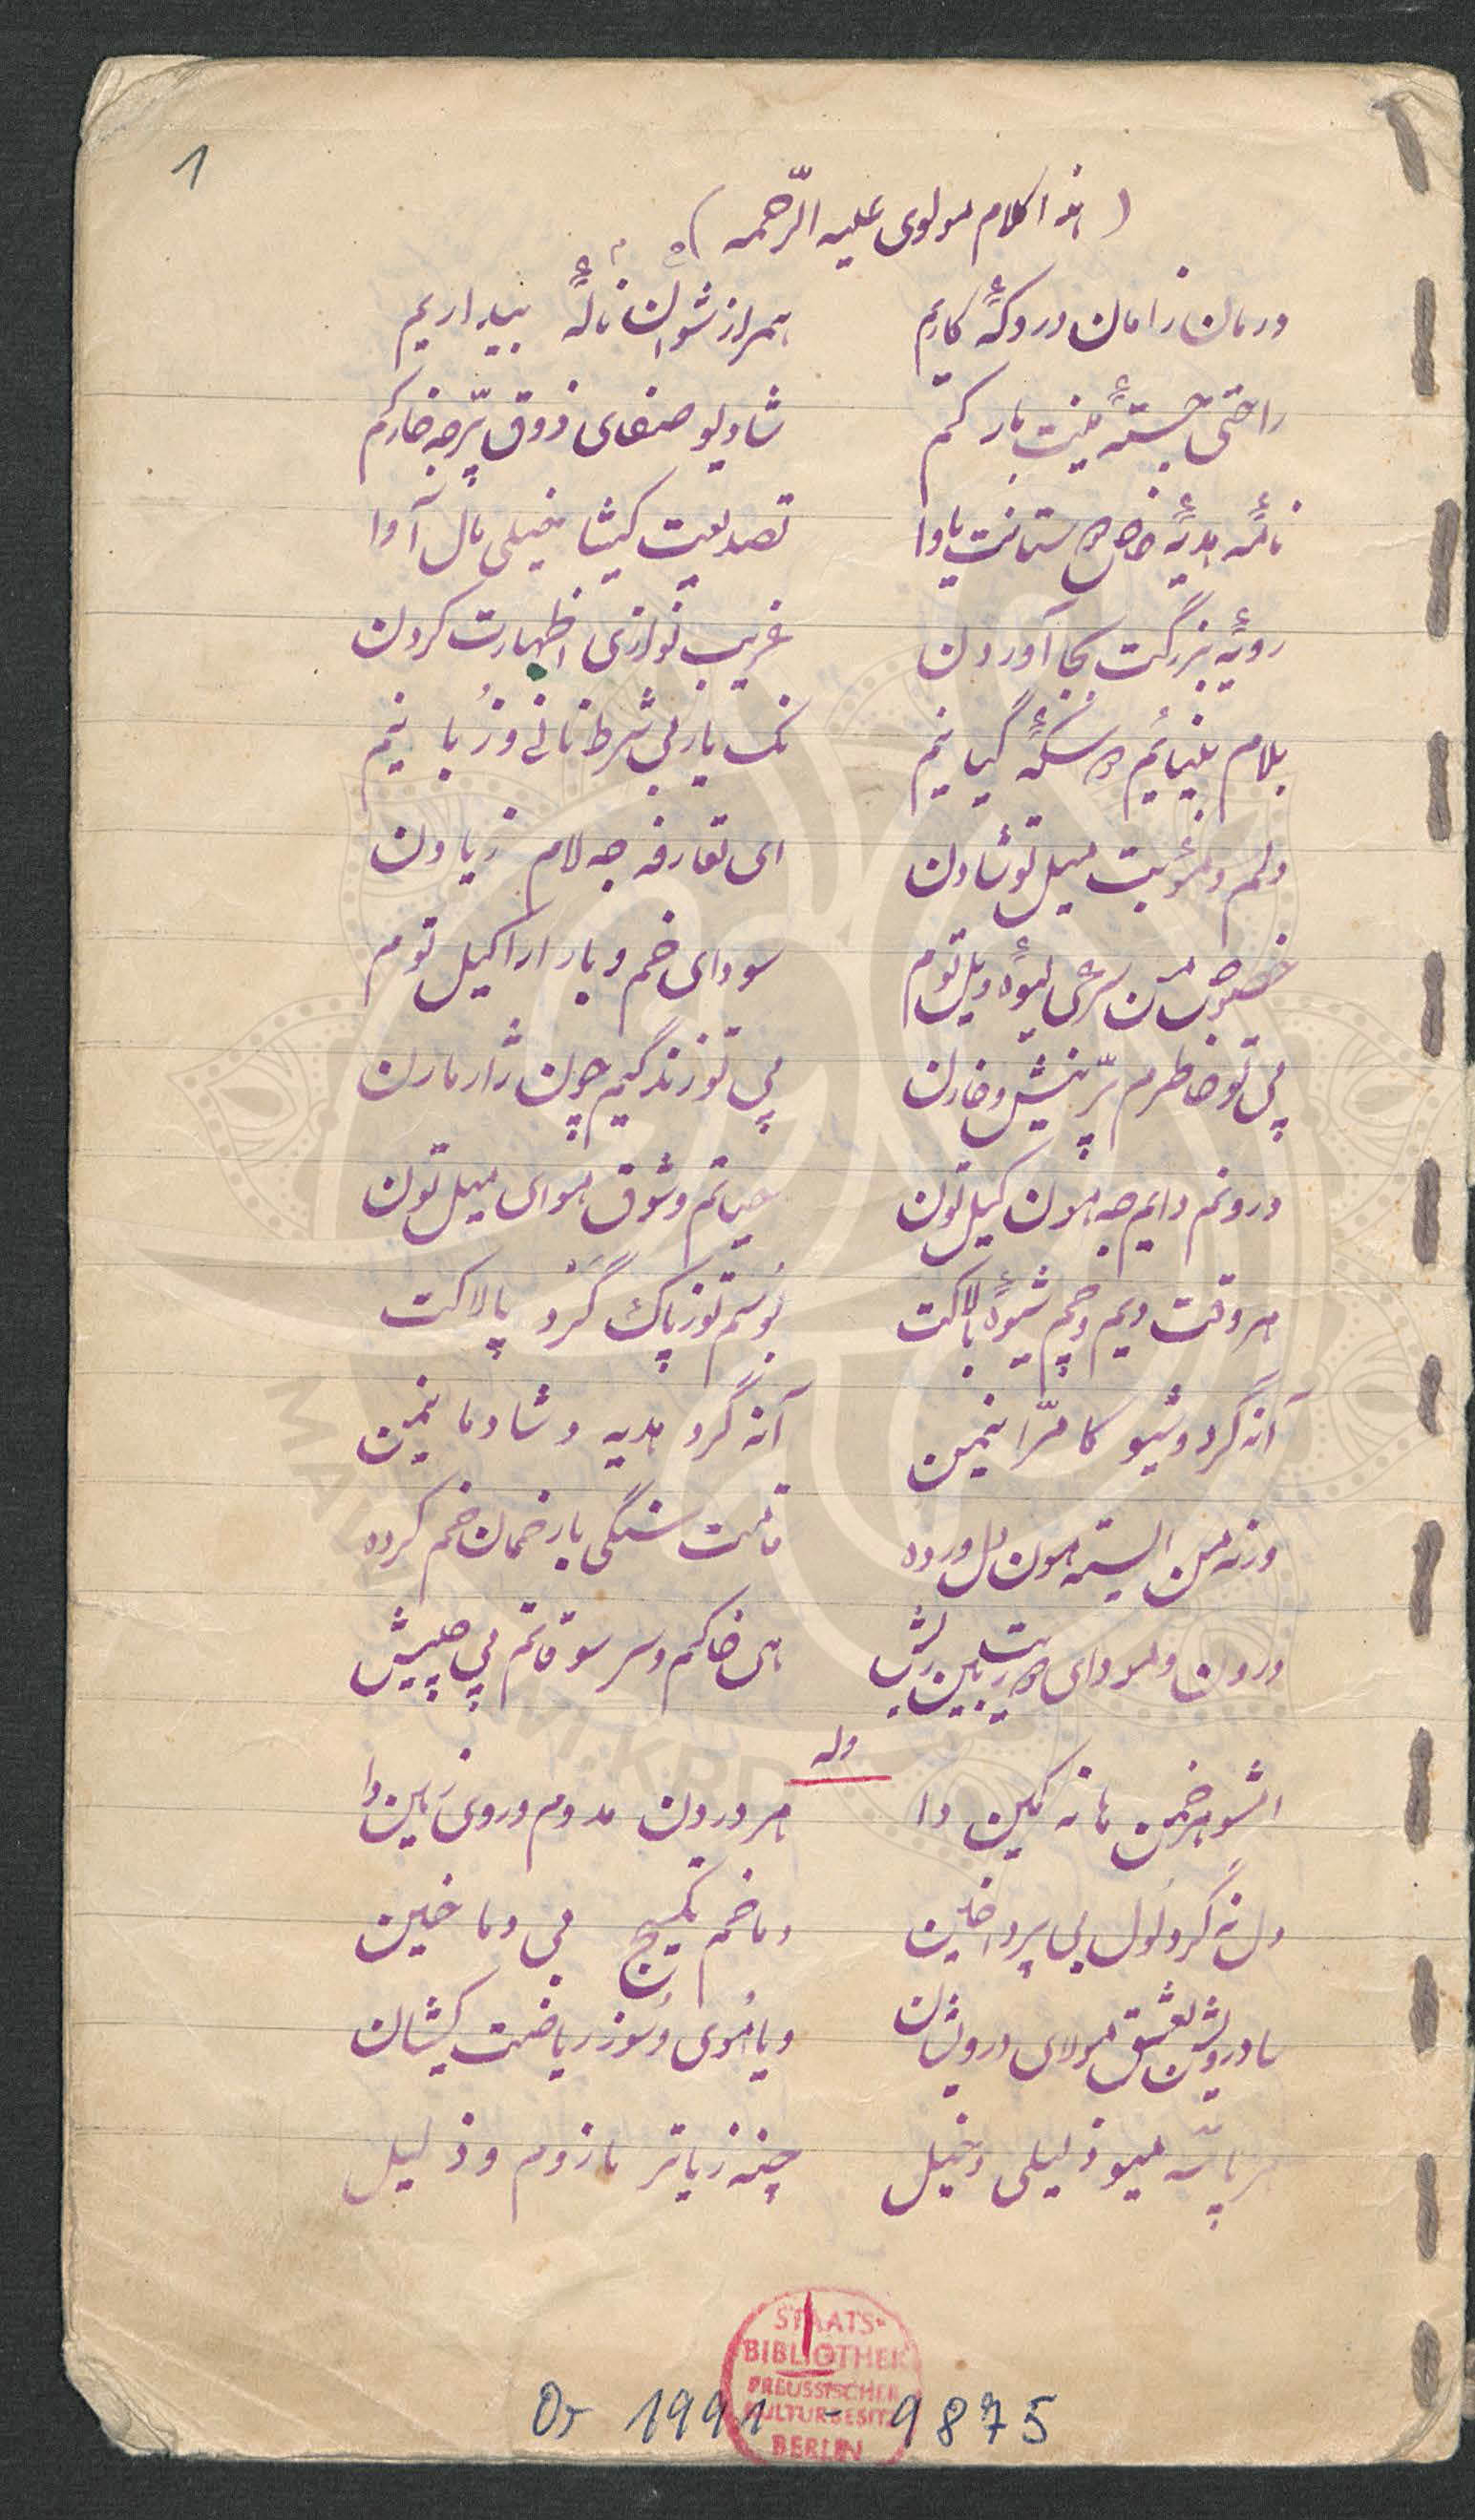 1
(هذا کلام مولوی علیه الرّحمه)
درمان زامان دردکهٔ کاریم همراز شوان نالهٔ بیداریم
راحتی جستهٔ مینت بارکم شادیو صفای ذوق پرجه خارکم
نامهٔ هدیهٔ خاص دستانت یاوا تصدیعت کیشا خیلی مال آوا
رویهٔ بزرگت بجا آوردن غریب نوازی اظهارت کردن
بلام بینائیم سکهٔ گیانیم نک یار بی شرط نانی و زبانیم
دلم میل تو شادن ای تعارفه جه لام زیادن
من لیوهٔ ویل توم سودای خم و بار اراکیل توم
پی تو خاطرم پّر نیش و خارن پی تو زندگیم چون ژار مارن
درونم دایم جه هون کیل تون حیاتم و شوق هوای میل تون
هر وقت دیم و چم شیوهٔ بالاکت بوسم توز پاک گرد پالاکت
آنه گرد وشیو کامرانیمن آنه گرد هدیه و شادمانیمن
ورنه من ایسته هون دل ورده قامت سنگی بار خمان خم کرده
درون وسودای هی خاکم وسر سوقاتم پی چیش
وله
امشو هرخمن هانه کمین دا هر دردن مدوم وروی زمین دا
دل نه گرد لول بی پرداخین دماخم یکیج بی دماخین
یا درویشن بعشق مولای درویشان ویاهوی وسوز ریاضت کیشان
هرپاسه میو ذلیلی دخیل چنه زیاتر مازوم و ذلیل
STAATS-
BIBLIOTHEK
PREUSSISCHER
KULTURBESITZ
BERLIN
Or 1991 - 9875